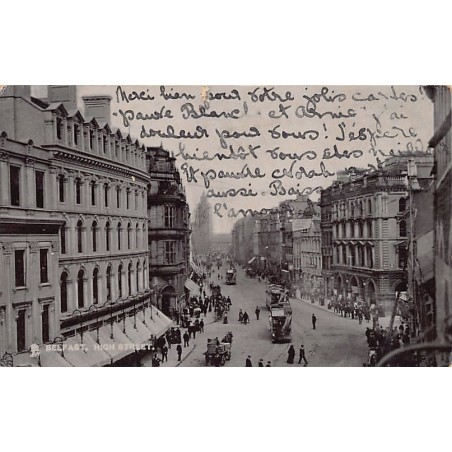 Merci bien pour votre jolis cartes
pauvre Blanc et Armé j'ai
douleur pour vous! J'espère
bientôt vous êtes
Et pauvre
aussi. Bais
l'amo
BELFAST, HIGH STREET.